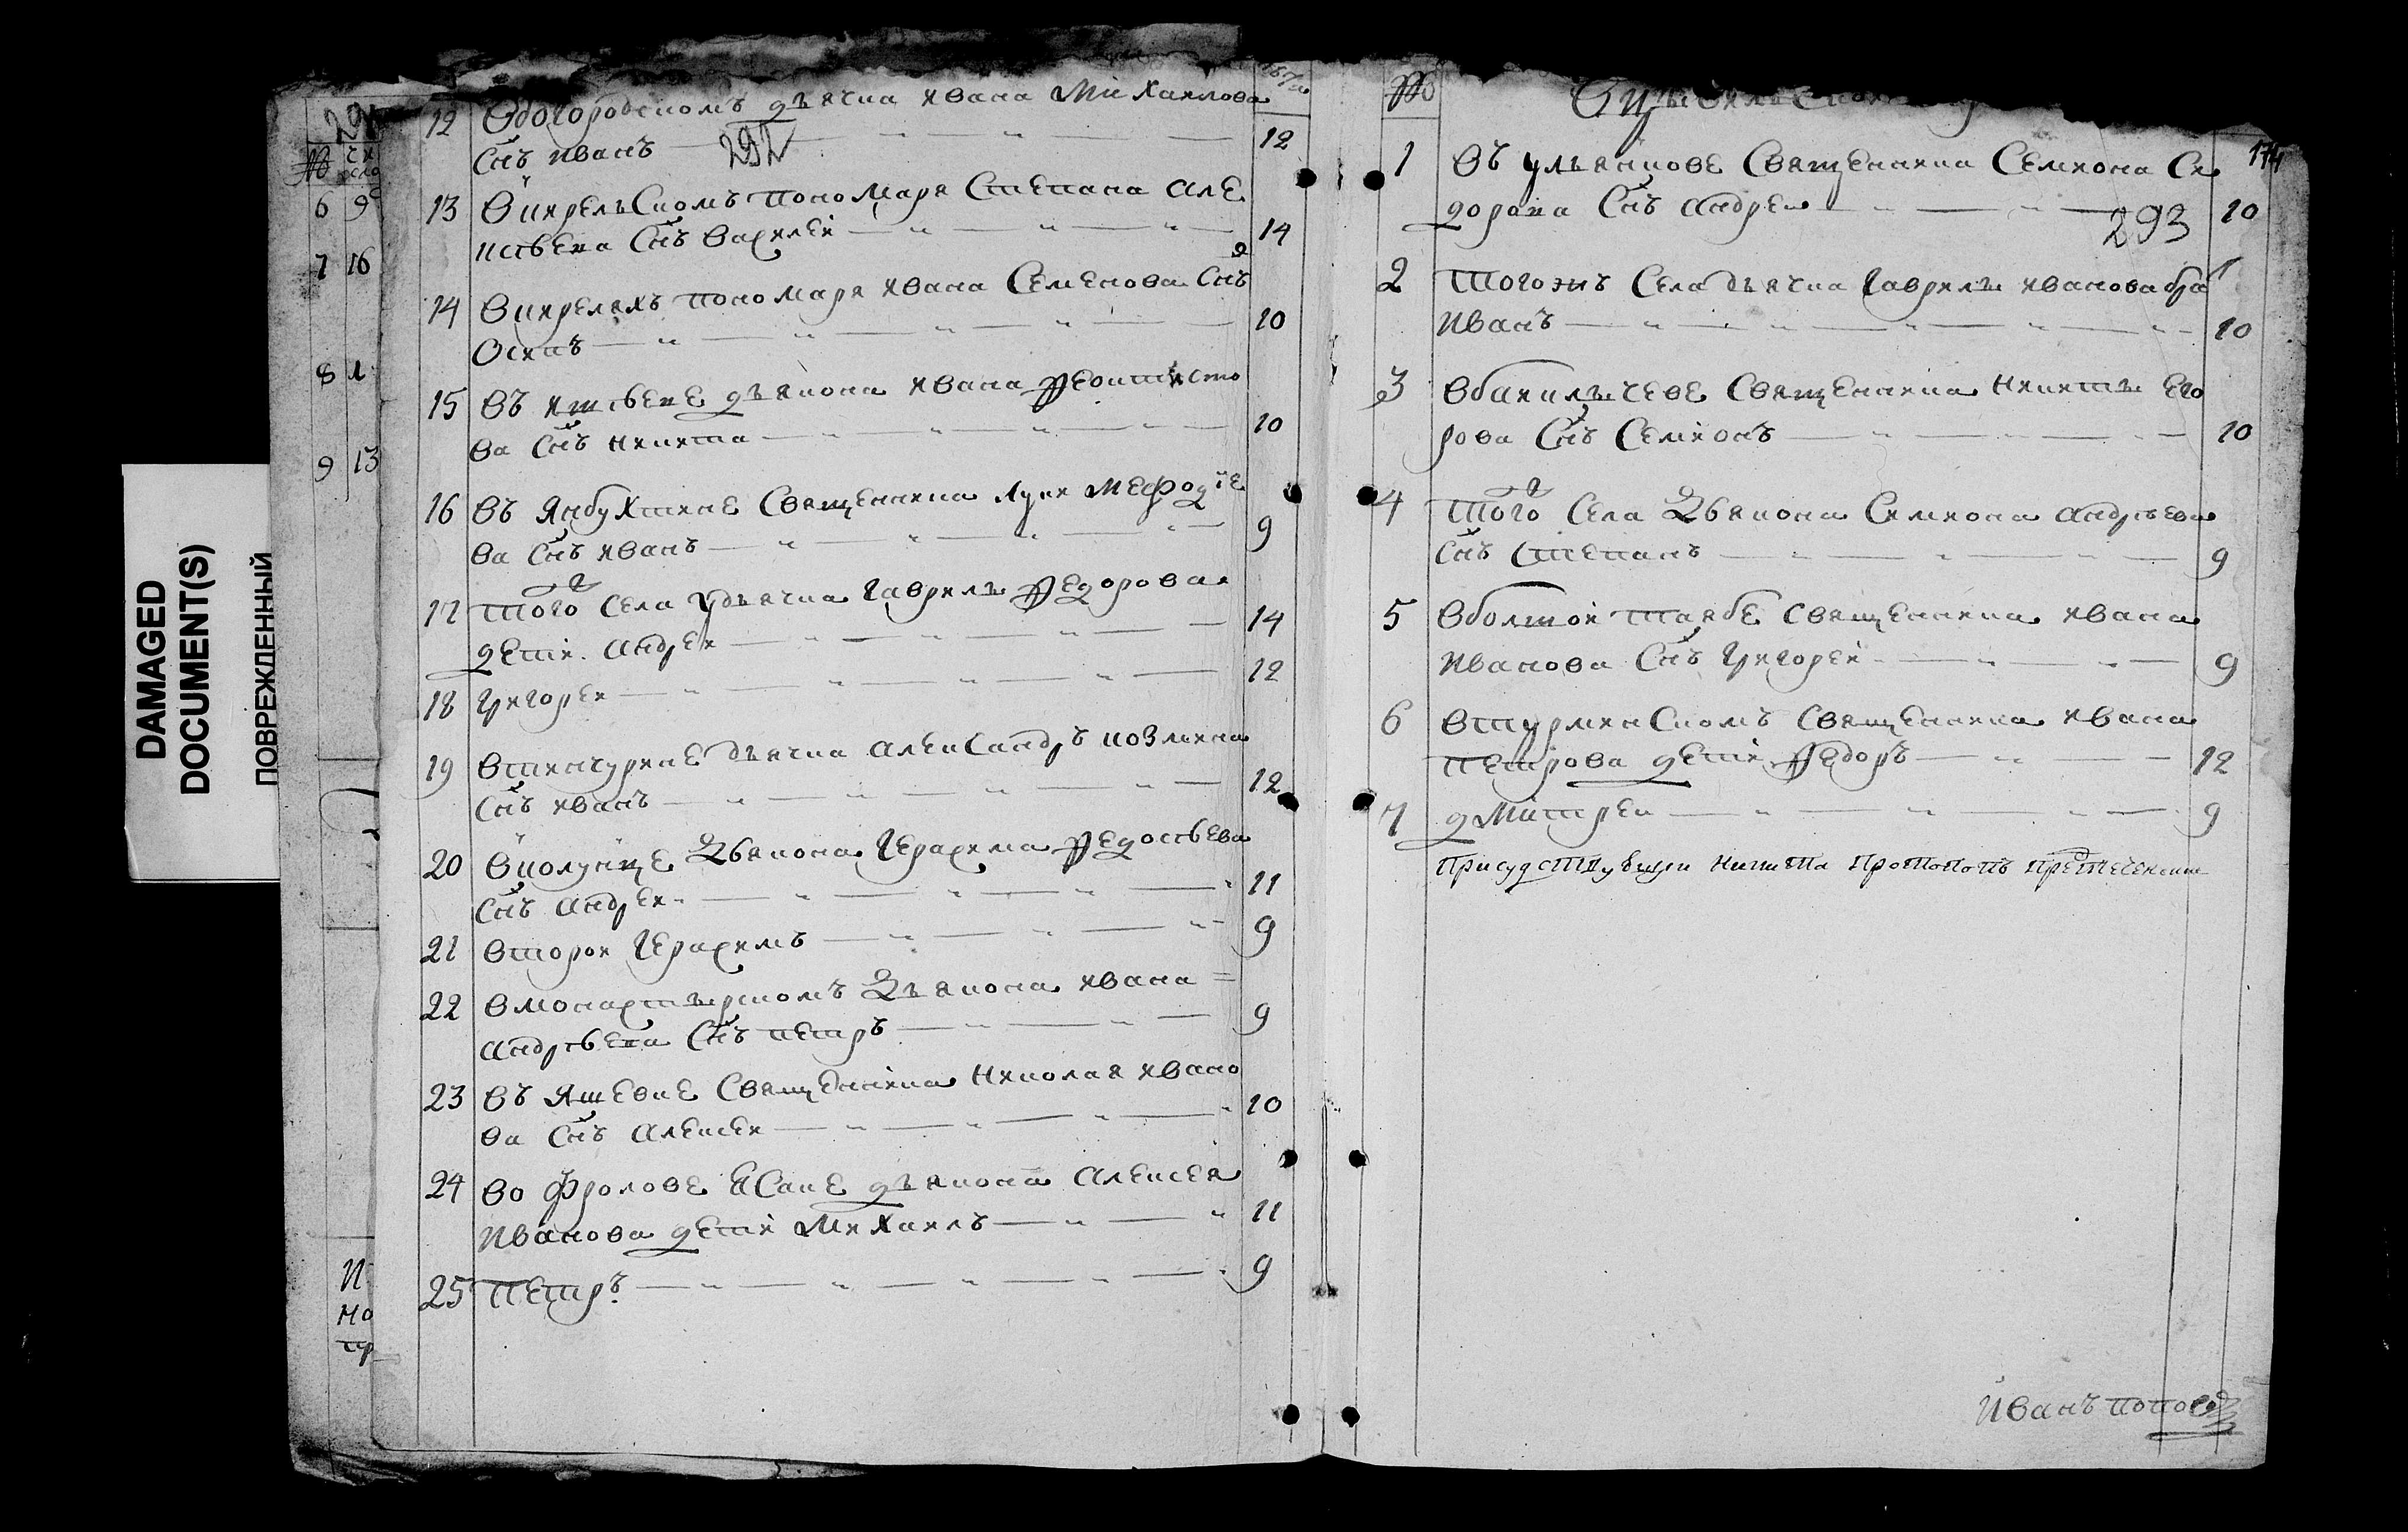 DAMAGED
DOCUMENT(S)
ПОВРЕЖДЕННЫЙ
6 9
7 16
8
9 13
12 Вбогородскомъ дьячка ивана Михаилова
снъ иванъ 292 12
13 Вкирельскомъ пономаря Степана але
ксѣева снъ Василеи 14
14 Вкиреляхъ пономаря ивана Семенова снъ
Осипъ 10
15 Въ ишѣеве дьякона ивана Феоктисто
ва снъ никита 10
16 Въ Янбухтине Священика луки Мефодïе
ва снъ иванъ 9
17 того села дьячка гаврилы Федорова
дети. андреи 14
18 григореи 12
19 Втинчурине дьячка александръ козмина
снъ иванъ 12
20 Вколунце Дьякона герасима Федосѣева
снъ андреи 11
21 второи герасимъ 9
22 Вмонастырскомъ Дьякона ивана
андрѣева снъ петръ 9
23 Въ Яшевке Священика николая ивано
ва снъ алексеи 10
24 Во Фролове дьякона алексея
иванова дети Михаилъ 11
25 петръ 9
№
174
1 Въ ульянкове Священика Семиона Си
дорова снъ андреи 10
293
2 тогожъ села дьячка гаврилы иванова бра
иванъ 10
3 Вбакильчеве Священика никиты его
рова снъ Семионъ 10
4 того села Дьякона Симиона андрѣева
снъ Степанъ 9
5 Вболшои таябе священика ивана
иванова снъ григореи 9
6 Втурминскомъ священика ивана
петрова дети Федоръ 12
7 дмитреи 9
присудствующи никита протопопъ
иванъ попов